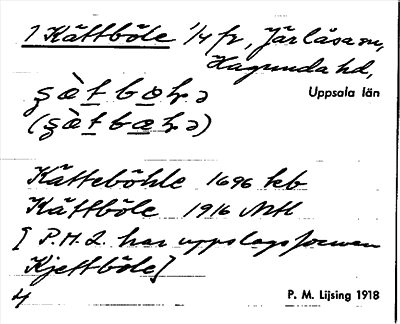 1 Kättböle 1/4 fr, Järlåsa sn,
Hagunda hd,
Uppsala län
Kätteböhle 1696 kb
Kättböle 1916 Mtl
[P.M.L. har uppslagsformen
Kjettböle]
4
P. M. Lijsing 1918